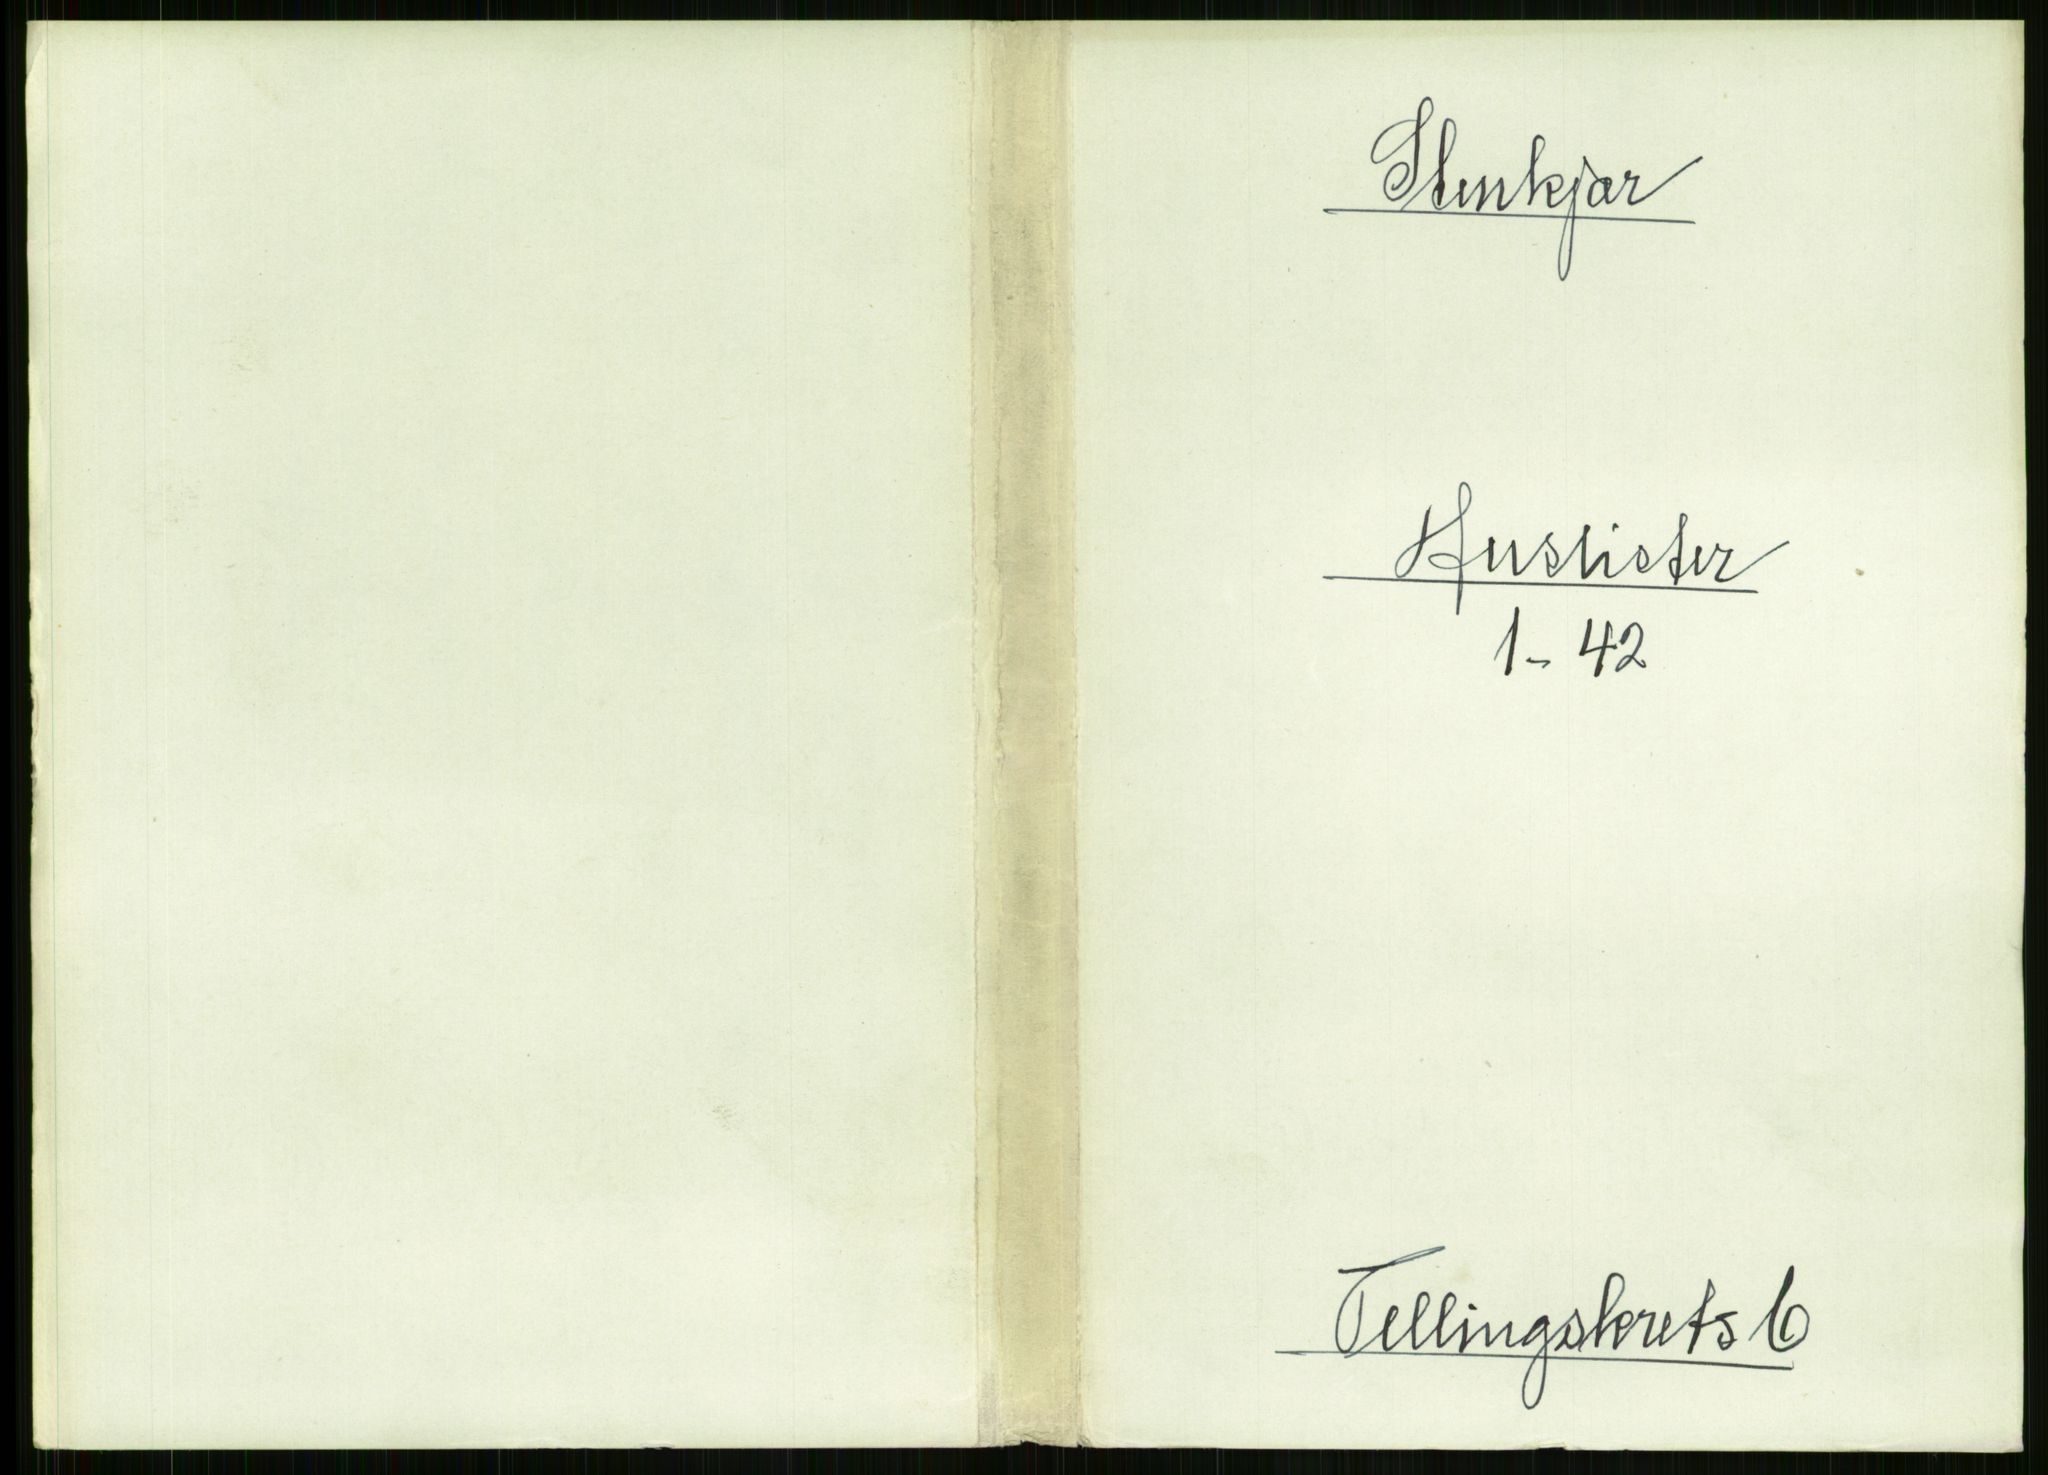 Stenkjær
Huslister
1- 42
Tellingskrets 6